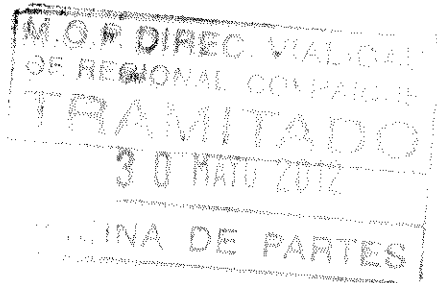 M.O.P. DIREC. VIALIDAD
DE REGIONAL
TRAMITADO
30 MAYO 2012
OFICINA DE PARTES